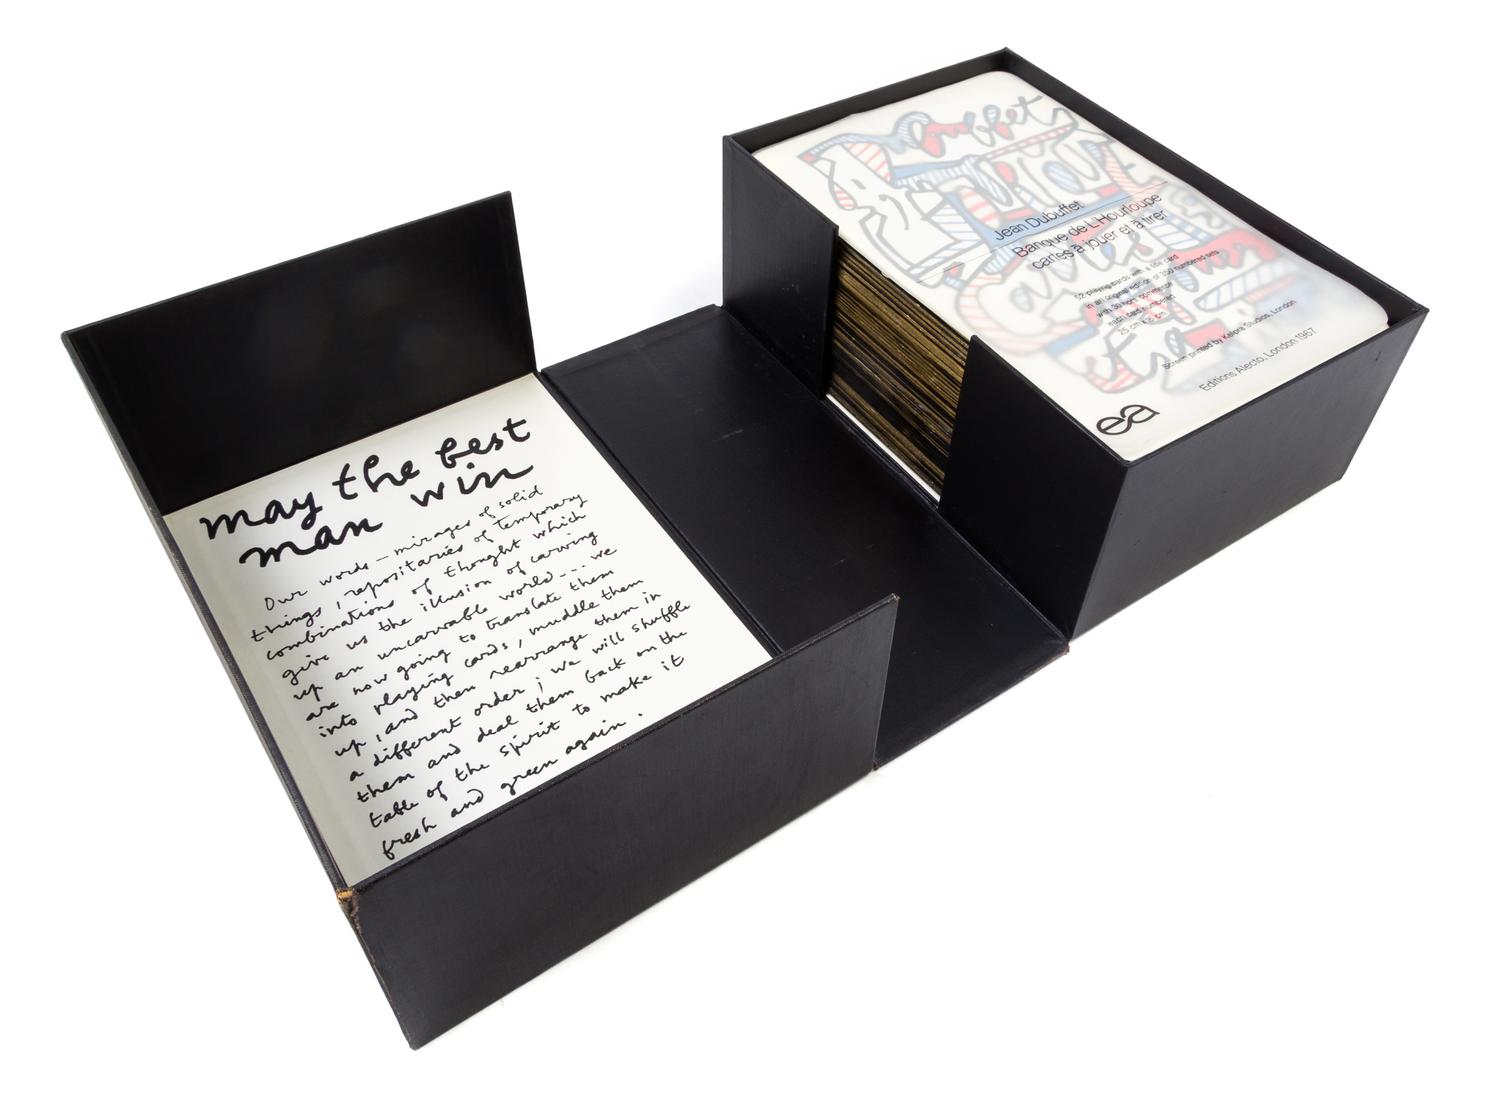 may the best
man win
Our words — mirages of solid
things, repositaries of temporary
combinations of thought which
give us the illusion of carving
up an uncarvable world --- we
are now going to translate them
into playing cards, muddle them
up, and then rearrange them in
a different order; we will shuffle
them and deal them back on the
table of the spirit to make it
fresh and green again.
Jean Dubuffet
Banque de L'Hourloupe
cartes à jouer et à tirer
52 playing cards with a title card
in an original edition of 350 numbered sets
with 30 hors commerce
each card numbered
25 cm x 16 cm
Screen printed by Kelpra Studios, London
Editions Alecto, London 1967
ea